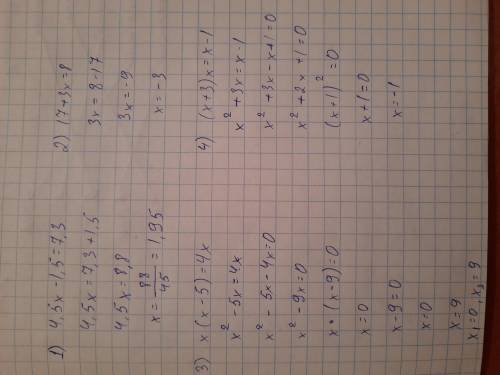 1) 4,5x - 1,5 = 7,3
4,5x = 7,3 + 1,5
4,5x = 8,8
x = 88/45 = 1,95
2) 17+3x=8
3x = 8-17
3x = -9
x = -3
3) x(x-5) = 4x
x² - 5x = 4x
x² - 5x - 4x = 0
x² - 9x = 0
x • (x-9) = 0
x = 0
x-9 = 0
x = 0
x = 9
x₁ = 0, x₂ = 9
4) (x+3)x = x-1
x² + 3x = x-1
x² + 3x - x + 1 = 0
x² + 2x + 1 = 0
(x+1)² = 0
x+1 = 0
x = -1